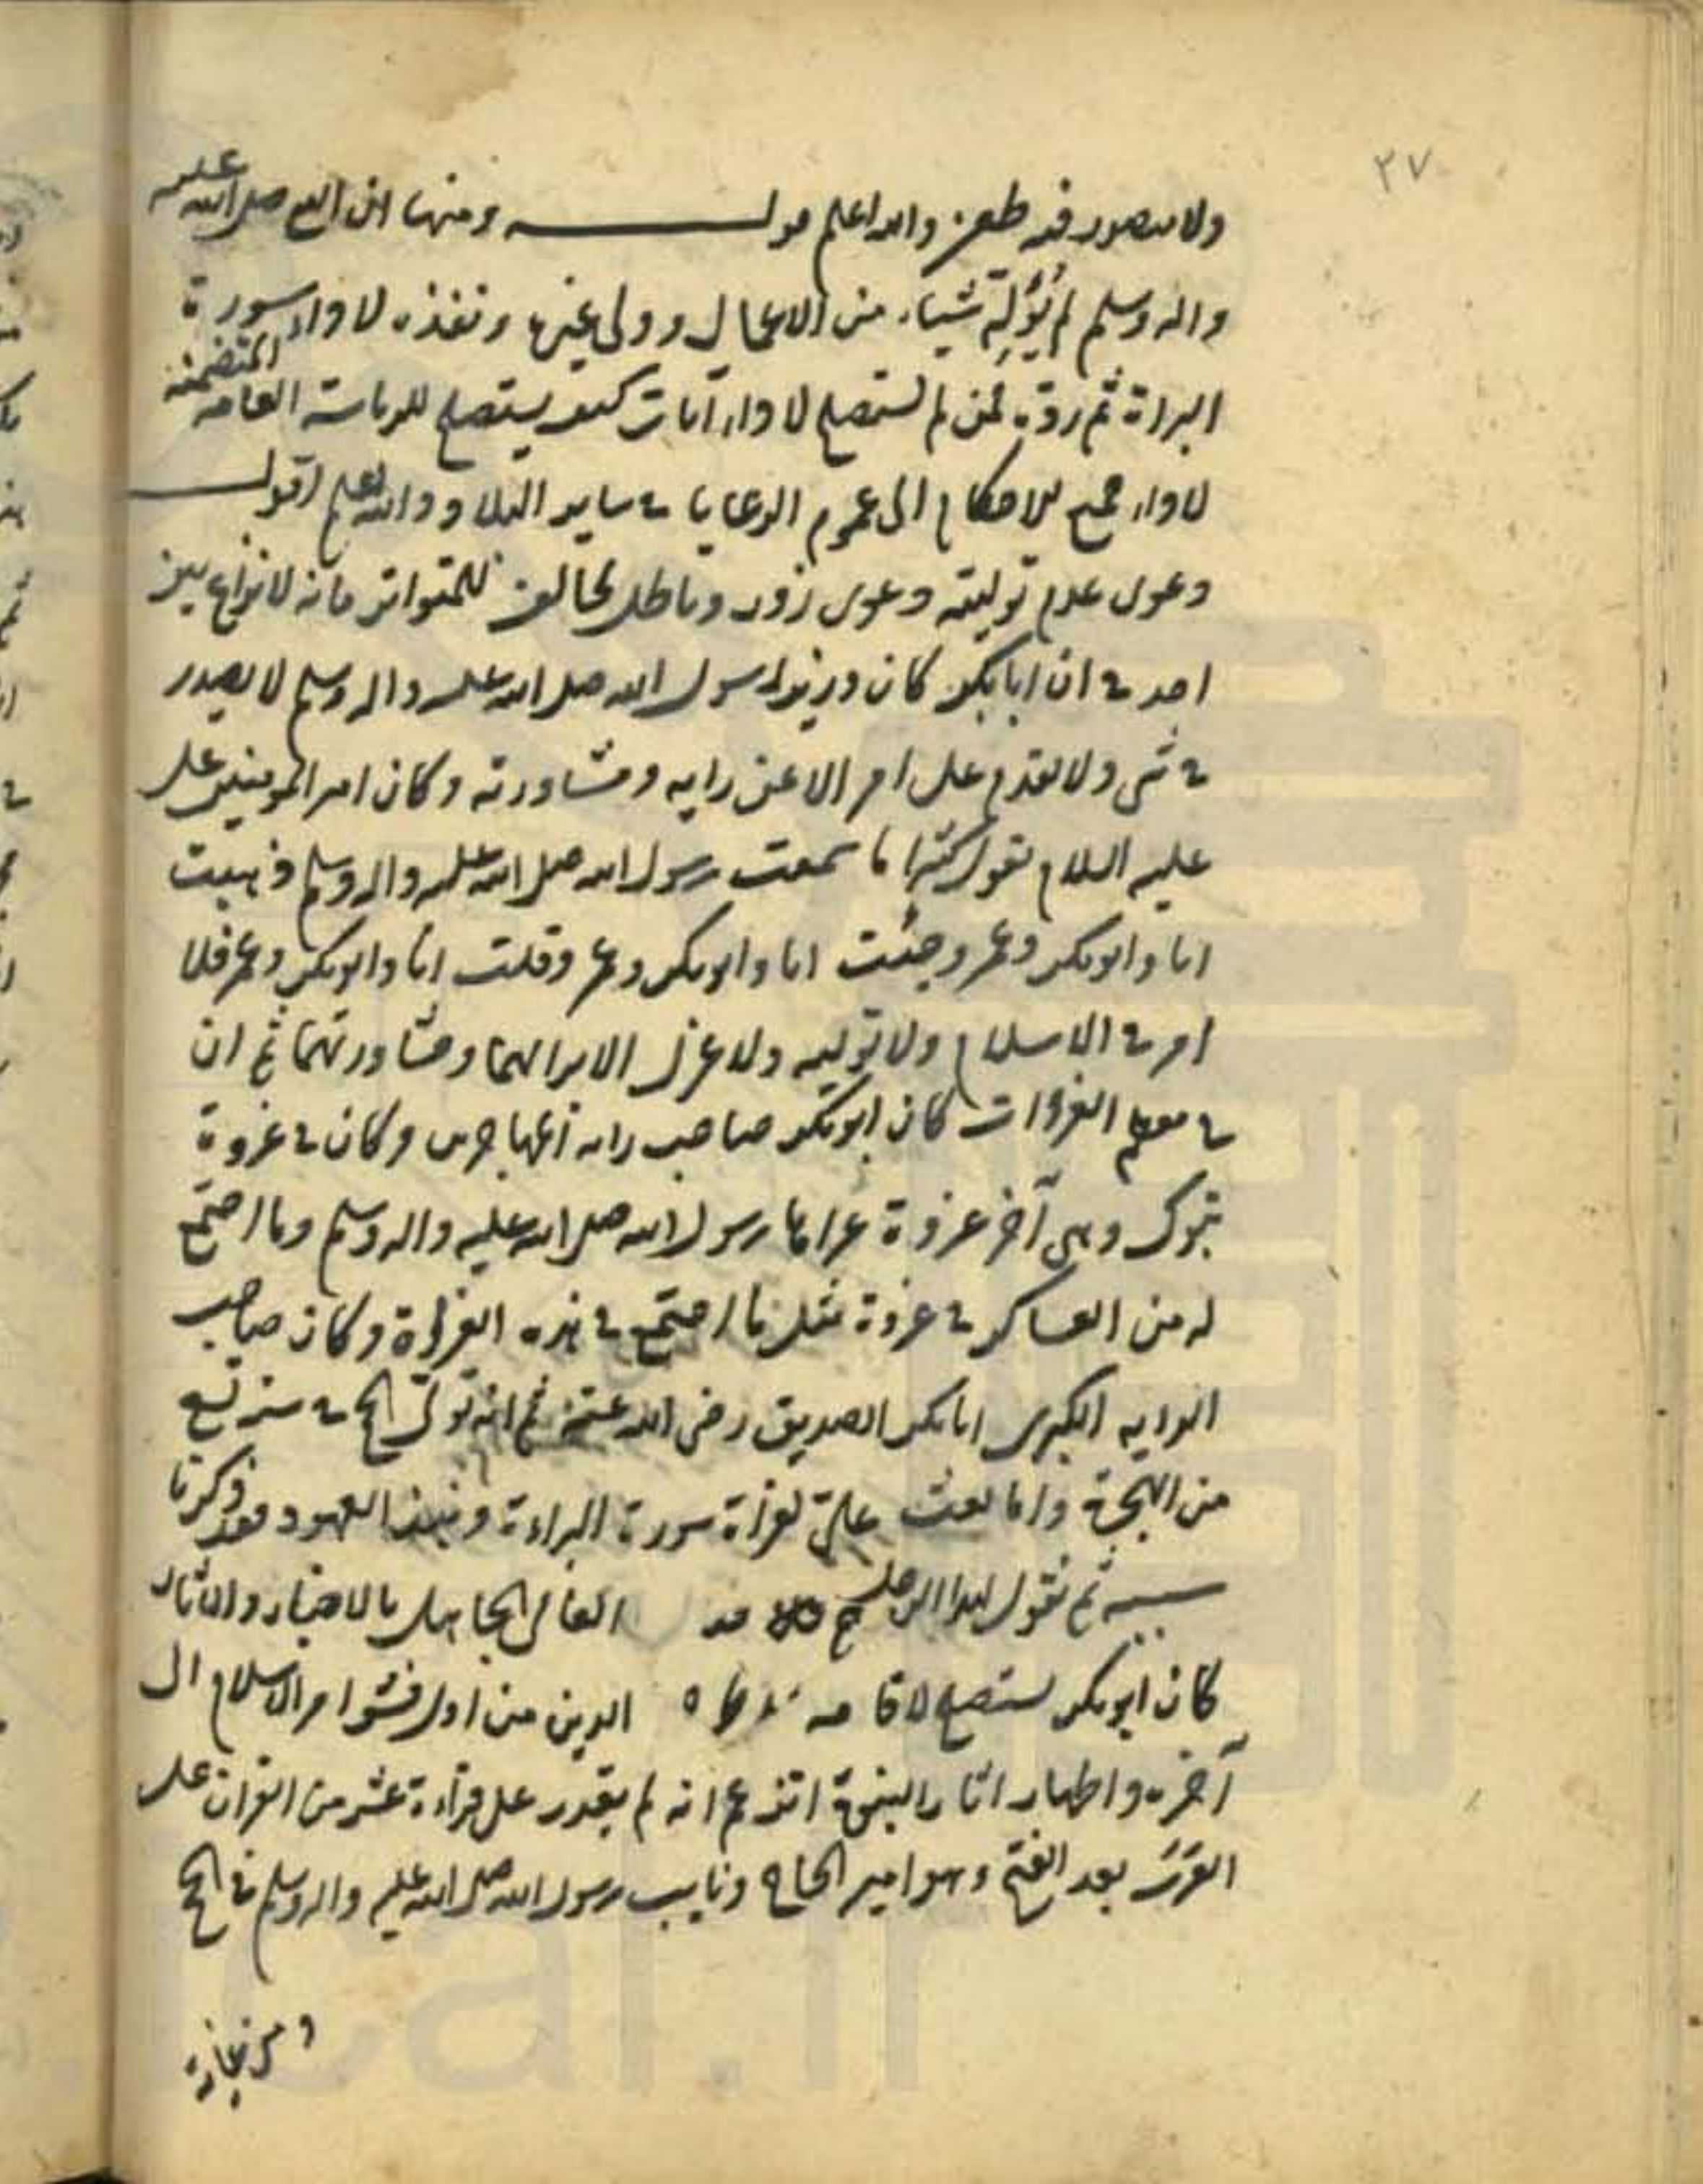 ٢٧
ولا يتصور فيه طعن والله اعلم قولـــه ومنها ان النبي صلى الله عليه
واله وسلم لم يُوَلِّهِ شيئا من الاعمال وولى غيره ونفذه لاداء سورة
البراة ثم رده فمن لم يستصلح لاداء آيات كيف يستصلح للرياسة العامه المتضمنه
لاداء جميع الاحكام الى عموم الرعايا في ساير البلاد والله اعلم اقولـــ
دعوى عدم توليته دعوى زور وباطل مخالف للمتواتر فانه لا نزاع بين
احد في ان ابابكر كان وزيرا لرسول الله صلى الله عليه واله وسلم لا يصدر
في شى ولا يقدم على امر الا عن رايه ومشاورته وكان امير المومنين على
عليه السلام يقول كثيرا ما سمعت رسول الله صلى الله عليه واله وسلم ذهبت
انا وابوبكر وعمر وجئت انا وابوبكر وعمر وقلت انا وابوبكر وعمر فلا
امر في الاسلام ولا توليه ولا عزل الا برايهما ومشاورتهما ثم ان
في معظم الغزوات كان ابوبكر صاحب راية المهاجرين وكان في غزوة
تبوك وهى آخر غزوة غزاها رسول الله صلى الله عليه واله وسلم وما اجتمع
له من العساكر في غزوة مثل ما اجتمع في هذه الغزوة وكان صاحب
الرايه الكبرى ابابكر الصديق رضى الله عنه ثم انه تولى الحج في سنة تسع
من الهجرة واما بعث على لقراة سورة البراءة ونبذ العهود فقد ذكرنا
سببه ثم نقول لهذا الرجل العامى الجاهل بالاخبار والاثار
كان ابوبكر يستصلح لاقامة الدين من اول فشو امر الاسلام الى
آخره واظهار اثار النبوة اتزعم انه لم يقدر على قراءة عشر من القران على
العرب بعد الفتح وهو امير الحاج ونايب رسول الله صلى الله عليه واله وسلم في الحج